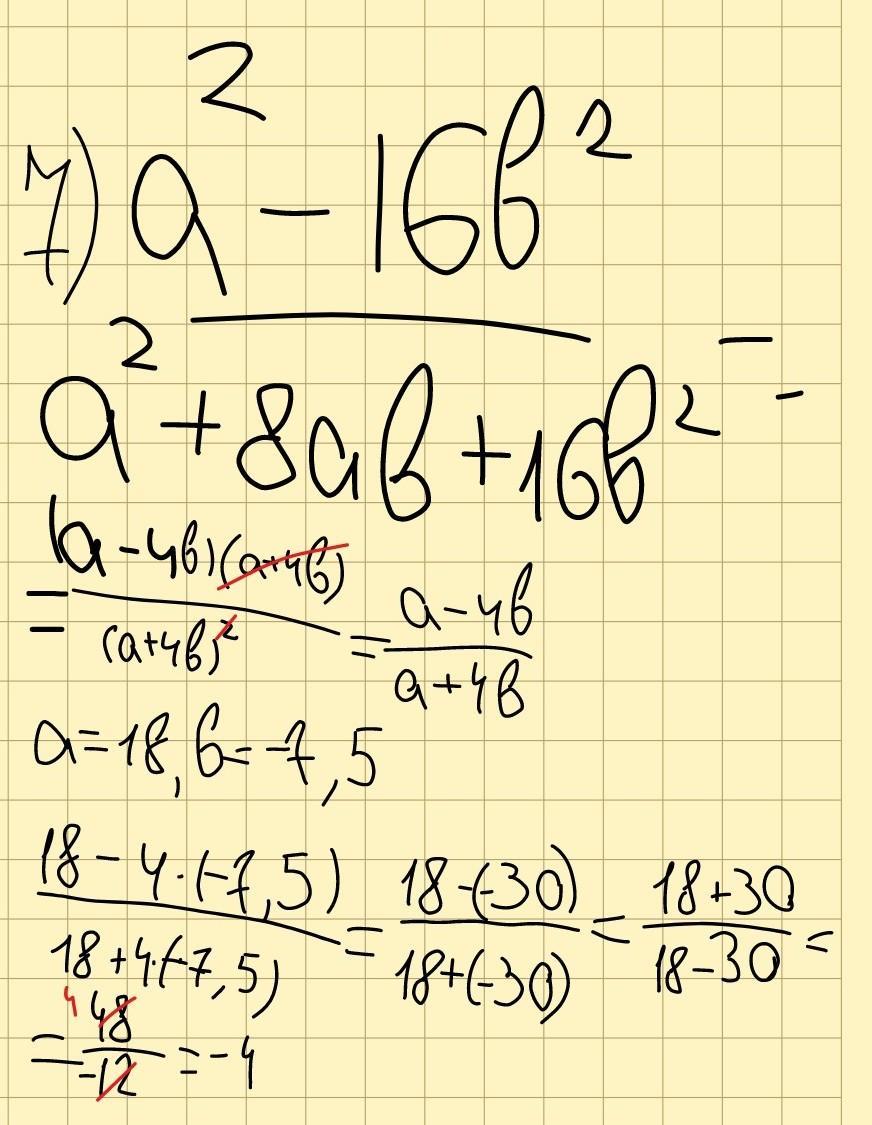 7) a² - 16в²
a² + 8ав + 16в² =
= (a - 4в)(a+4в) / (a+4в)² = a - 4в / a + 4в
a = 18, в = -7,5
18 - 4·(-7,5) / 18 + 4·(-7,5) = 18-(-30) / 18+(-30) = 18+30 / 18-30 =
= 4 48 / -12 = -4